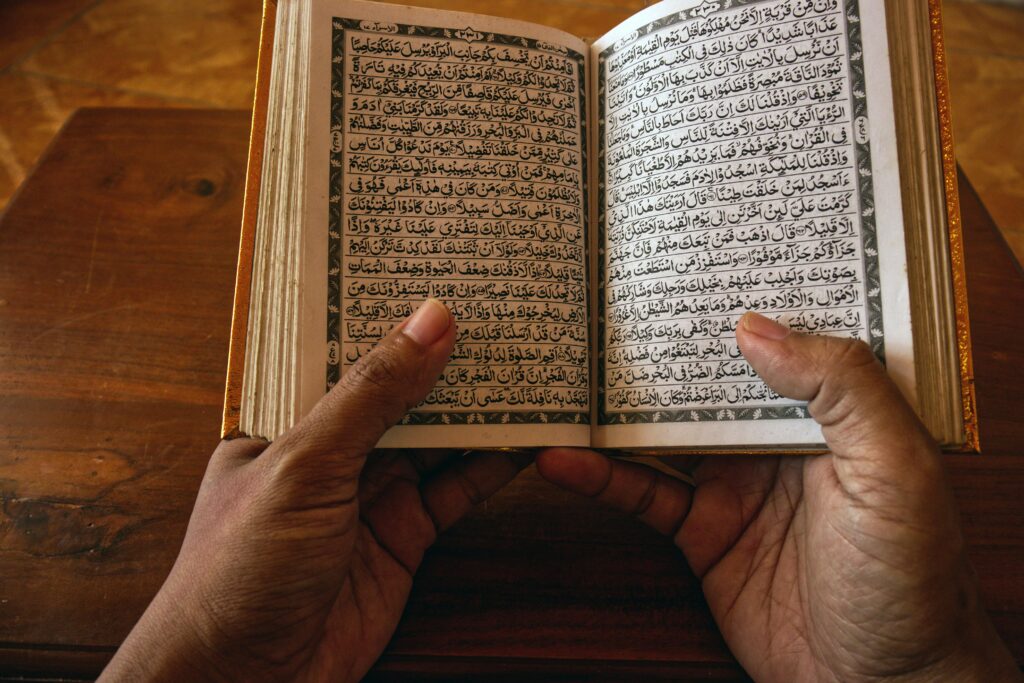 وَاِنْ مِّنْ قَرْيَةٍ اِلَّا نَحْنُ مُهْلِكُوْهَا قَبْلَ يَوْمِ الْقِيٰمَةِ اَوْ مُعَذِّبُوْهَا
عَذَابًا شَدِيْدًا كَانَ ذٰلِكَ فِى الْكِتٰبِ مَسْطُوْرًا وَمَا مَنَعَنَآ
اَنْ نُّرْسِلَ بِالْاٰيٰتِ اِلَّآ اَنْ كَذَّبَ بِهَا الْاَوَّلُوْنَ وَاٰتَيْنَا
ثَمُوْدَ النَّاقَةَ مُبْصِرَةً فَظَلَمُوْا بِهَا وَمَا نُرْسِلُ بِالْاٰيٰتِ اِلَّا
تَخْوِيْفًا وَاِذْ قُلْنَا لَكَ اِنَّ رَبَّكَ اَحَاطَ بِالنَّاسِ وَمَا جَعَلْنَا
الرُّءْيَا الَّتِيْٓ اَرَيْنٰكَ اِلَّا فِتْنَةً لِّلنَّاسِ وَالشَّجَرَةَ الْمَلْعُوْنَةَ
فِى الْقُرْاٰنِ وَنُخَوِّفُهُمْ فَمَا يَزِيْدُهُمْ اِلَّا طُغْيَانًا كَبِيْرًا
وَاِذْ قُلْنَا لِلْمَلٰٓئِكَةِ اسْجُدُوْا لِاٰدَمَ فَسَجَدُوْٓا اِلَّآ اِبْلِيْسَ قَالَ
ءَاَسْجُدُ لِمَنْ خَلَقْتَ طِيْنًا قَالَ اَرَءَيْتَكَ هٰذَا الَّذِيْ
كَرَّمْتَ عَلَيَّ لَئِنْ اَخَّرْتَنِ اِلٰى يَوْمِ الْقِيٰمَةِ لَاَحْتَنِكَنَّ ذُرِّيَّتَهٗٓ
اِلَّا قَلِيْلًا قَالَ اذْهَبْ فَمَنْ تَبِعَكَ مِنْهُمْ فَاِنَّ جَهَنَّمَ
جَزَآؤُكُمْ جَزَآءً مَّوْفُوْرًا وَاسْتَفْزِزْ مَنِ اسْتَطَعْتَ مِنْهُمْ
بِصَوْتِكَ وَاَجْلِبْ عَلَيْهِمْ بِخَيْلِكَ وَرَجِلِكَ وَشَارِكْهُمْ فِى
الْاَمْوَالِ وَالْاَوْلَادِ وَعِدْهُمْ وَمَا يَعِدُهُمُ الشَّيْطٰنُ اِلَّا غُرُوْرًا
اِنَّ عِبَادِيْ
سُلْطٰنٌ وَكَفٰى بِرَبِّكَ وَكِيْلًا
فِى الْبَحْرِ لِتَبْتَغُوْا مِنْ فَضْلِهٖ اِنَّهٗ
مَسَّكُمُ الضُّرُّ فِى الْبَحْرِ ضَلَّ مَنْ
نَجّٰىكُمْ اِلَى الْبَرِّ اَعْرَضْتُمْ وَكَانَ الْاِنْسَانُ كَفُوْرًا
اَفَاَمِنْتُمْ اَنْ يَّخْسِفَ بِكُمْ جَانِبَ الْبَرِّ اَوْ يُرْسِلَ عَلَيْكُمْ حَاصِبًا
ثُمَّ لَا تَجِدُوْا لَكُمْ وَكِيْلًا اَمْ اَمِنْتُمْ اَنْ يُّعِيْدَكُمْ فِيْهِ تَارَةً
اُخْرٰى فَيُرْسِلَ عَلَيْكُمْ قَاصِفًا مِّنَ الرِّيْحِ فَيُغْرِقَكُمْ بِمَا كَفَرْتُمْ
ثُمَّ لَا تَجِدُوْا لَكُمْ عَلَيْنَا بِهٖ تَبِيْعًا وَلَقَدْ كَرَّمْنَا بَنِيْٓ اٰدَمَ وَ
حَمَلْنٰهُمْ فِى الْبَرِّ وَالْبَحْرِ وَرَزَقْنٰهُمْ مِّنَ الطَّيِّبٰتِ وَفَضَّلْنٰهُمْ
عَلٰى كَثِيْرٍ مِّمَّنْ خَلَقْنَا تَفْضِيْلًا يَوْمَ نَدْعُوْا كُلَّ اُنَاسٍ
بِاِمَامِهِمْ فَمَنْ اُوْتِيَ كِتٰبَهٗ بِيَمِيْنِهٖ فَاُولٰٓئِكَ يَقْرَءُوْنَ كِتٰبَهُمْ
وَلَا يُظْلَمُوْنَ فَتِيْلًا وَمَنْ كَانَ فِيْ هٰذِهٖٓ اَعْمٰى فَهُوَ فِى
الْاٰخِرَةِ اَعْمٰى وَاَضَلُّ سَبِيْلًا وَاِنْ كَادُوْا لَيَفْتِنُوْنَكَ
عَنِ الَّذِيْٓ اَوْحَيْنَآ اِلَيْكَ لِتَفْتَرِيَ عَلَيْنَا غَيْرَهٗ وَاِذًا
لَّاتَّخَذُوْكَ خَلِيْلًا وَلَوْلَآ اَنْ ثَبَّتْنٰكَ لَقَدْ كِدْتَّ تَرْكَنُ اِلَيْهِمْ
شَيْئًا قَلِيْلًا اِذًا لَّاَذَقْنٰكَ ضِعْفَ الْحَيٰوةِ وَضِعْفَ الْمَمَاتِ
ثُمَّ لَا تَجِدُ لَكَ عَلَيْنَا نَصِيْرًا وَاِنْ كَادُوْا لَيَسْتَفِزُّوْنَكَ مِنَ
الْاَرْضِ لِيُخْرِجُوْكَ مِنْهَا وَاِذًا لَّا خِلٰفَكَ اِلَّا قَلِيْلًا
سُنَّةَ مَنْ قَدْ اَرْسَلْنَا قَبْلَكَ مِنْ رُّسُلِنَا لِسُنَّتِنَا
تَحْوِيْلًا اَقِمِ الصَّلٰوةَ لِدُلُوْكِ الشَّمْسِ
وَقُرْاٰنَ الْفَجْرِ اِنَّ قُرْاٰنَ الْفَجْرِ كَانَ
فَتَهَجَّدْ بِهٖ نَافِلَةً لَّكَ عَسٰٓى اَنْ يَّبْعَثَكَ